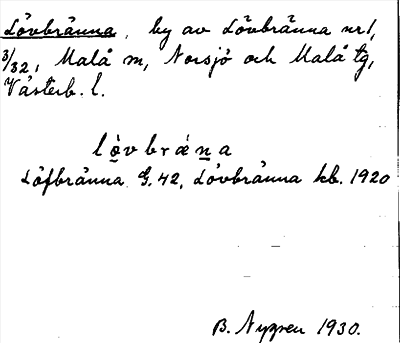 Lövbränna, by av Lövbränna nr 1,
3/32, Malå sn, Norsjö och Malå tg,
Västerb. l.
lö̀vbrǽna
Löfbränna G. 42, Lövbränna kb. 1920
B. Nygren 1930.